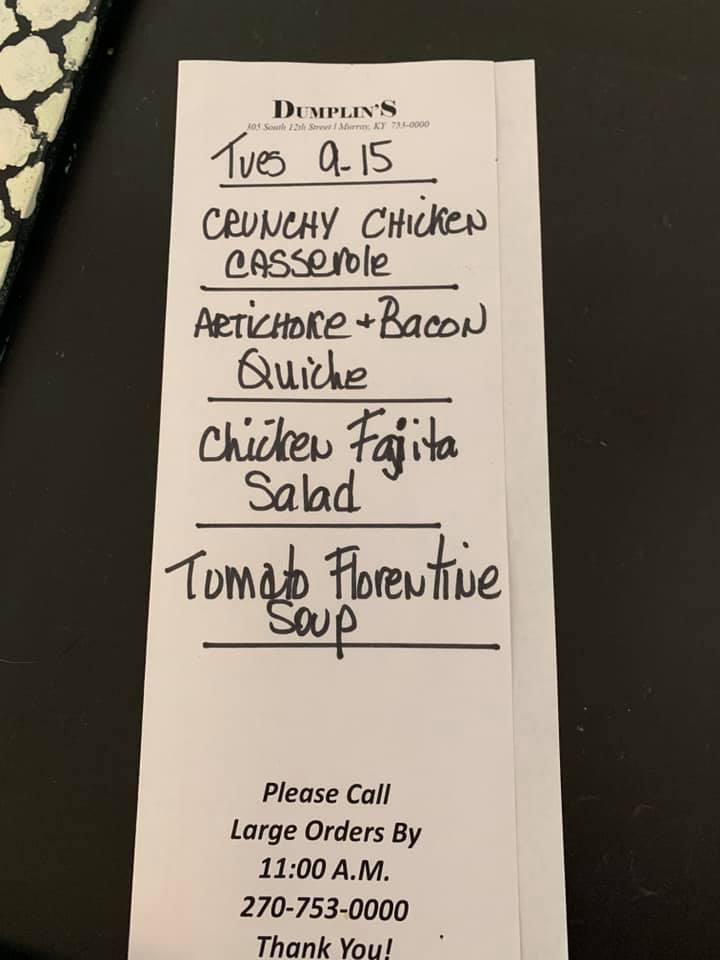 DUMPLIN'S
305 South 12th Street | Murray, KY 753-0000
Tues 9-15
CRUNCHY CHICKEN
CASSEROLE
ARTICHOKE + BACON
Quiche
Chicken Fajita
Salad
Tomato Florentine
Soup
Please Call
Large Orders By
11:00 A.M.
270-753-0000
Thank You!